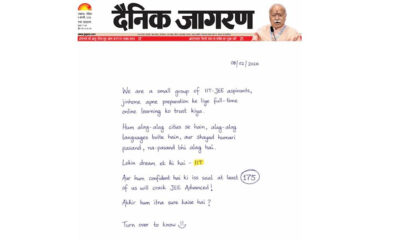 दैनिक जागरण
08/02/2024
We are a small group of IIT-JEE aspirants,
jinhone apne preparation ke liye full-time
online learning ko trust kiya.
Hum alag-alag cities se hain, alag-alag
languages bolte hain, aur shayad humari
pasand, na-pasand bhi alag hai.
Lekin dream ek hi hai - IIT
Aur hum confident hai ki iss saal at least 175
of us will crack JEE Advanced!
Akhir hum itna sure kaise hai?
Turn over to know